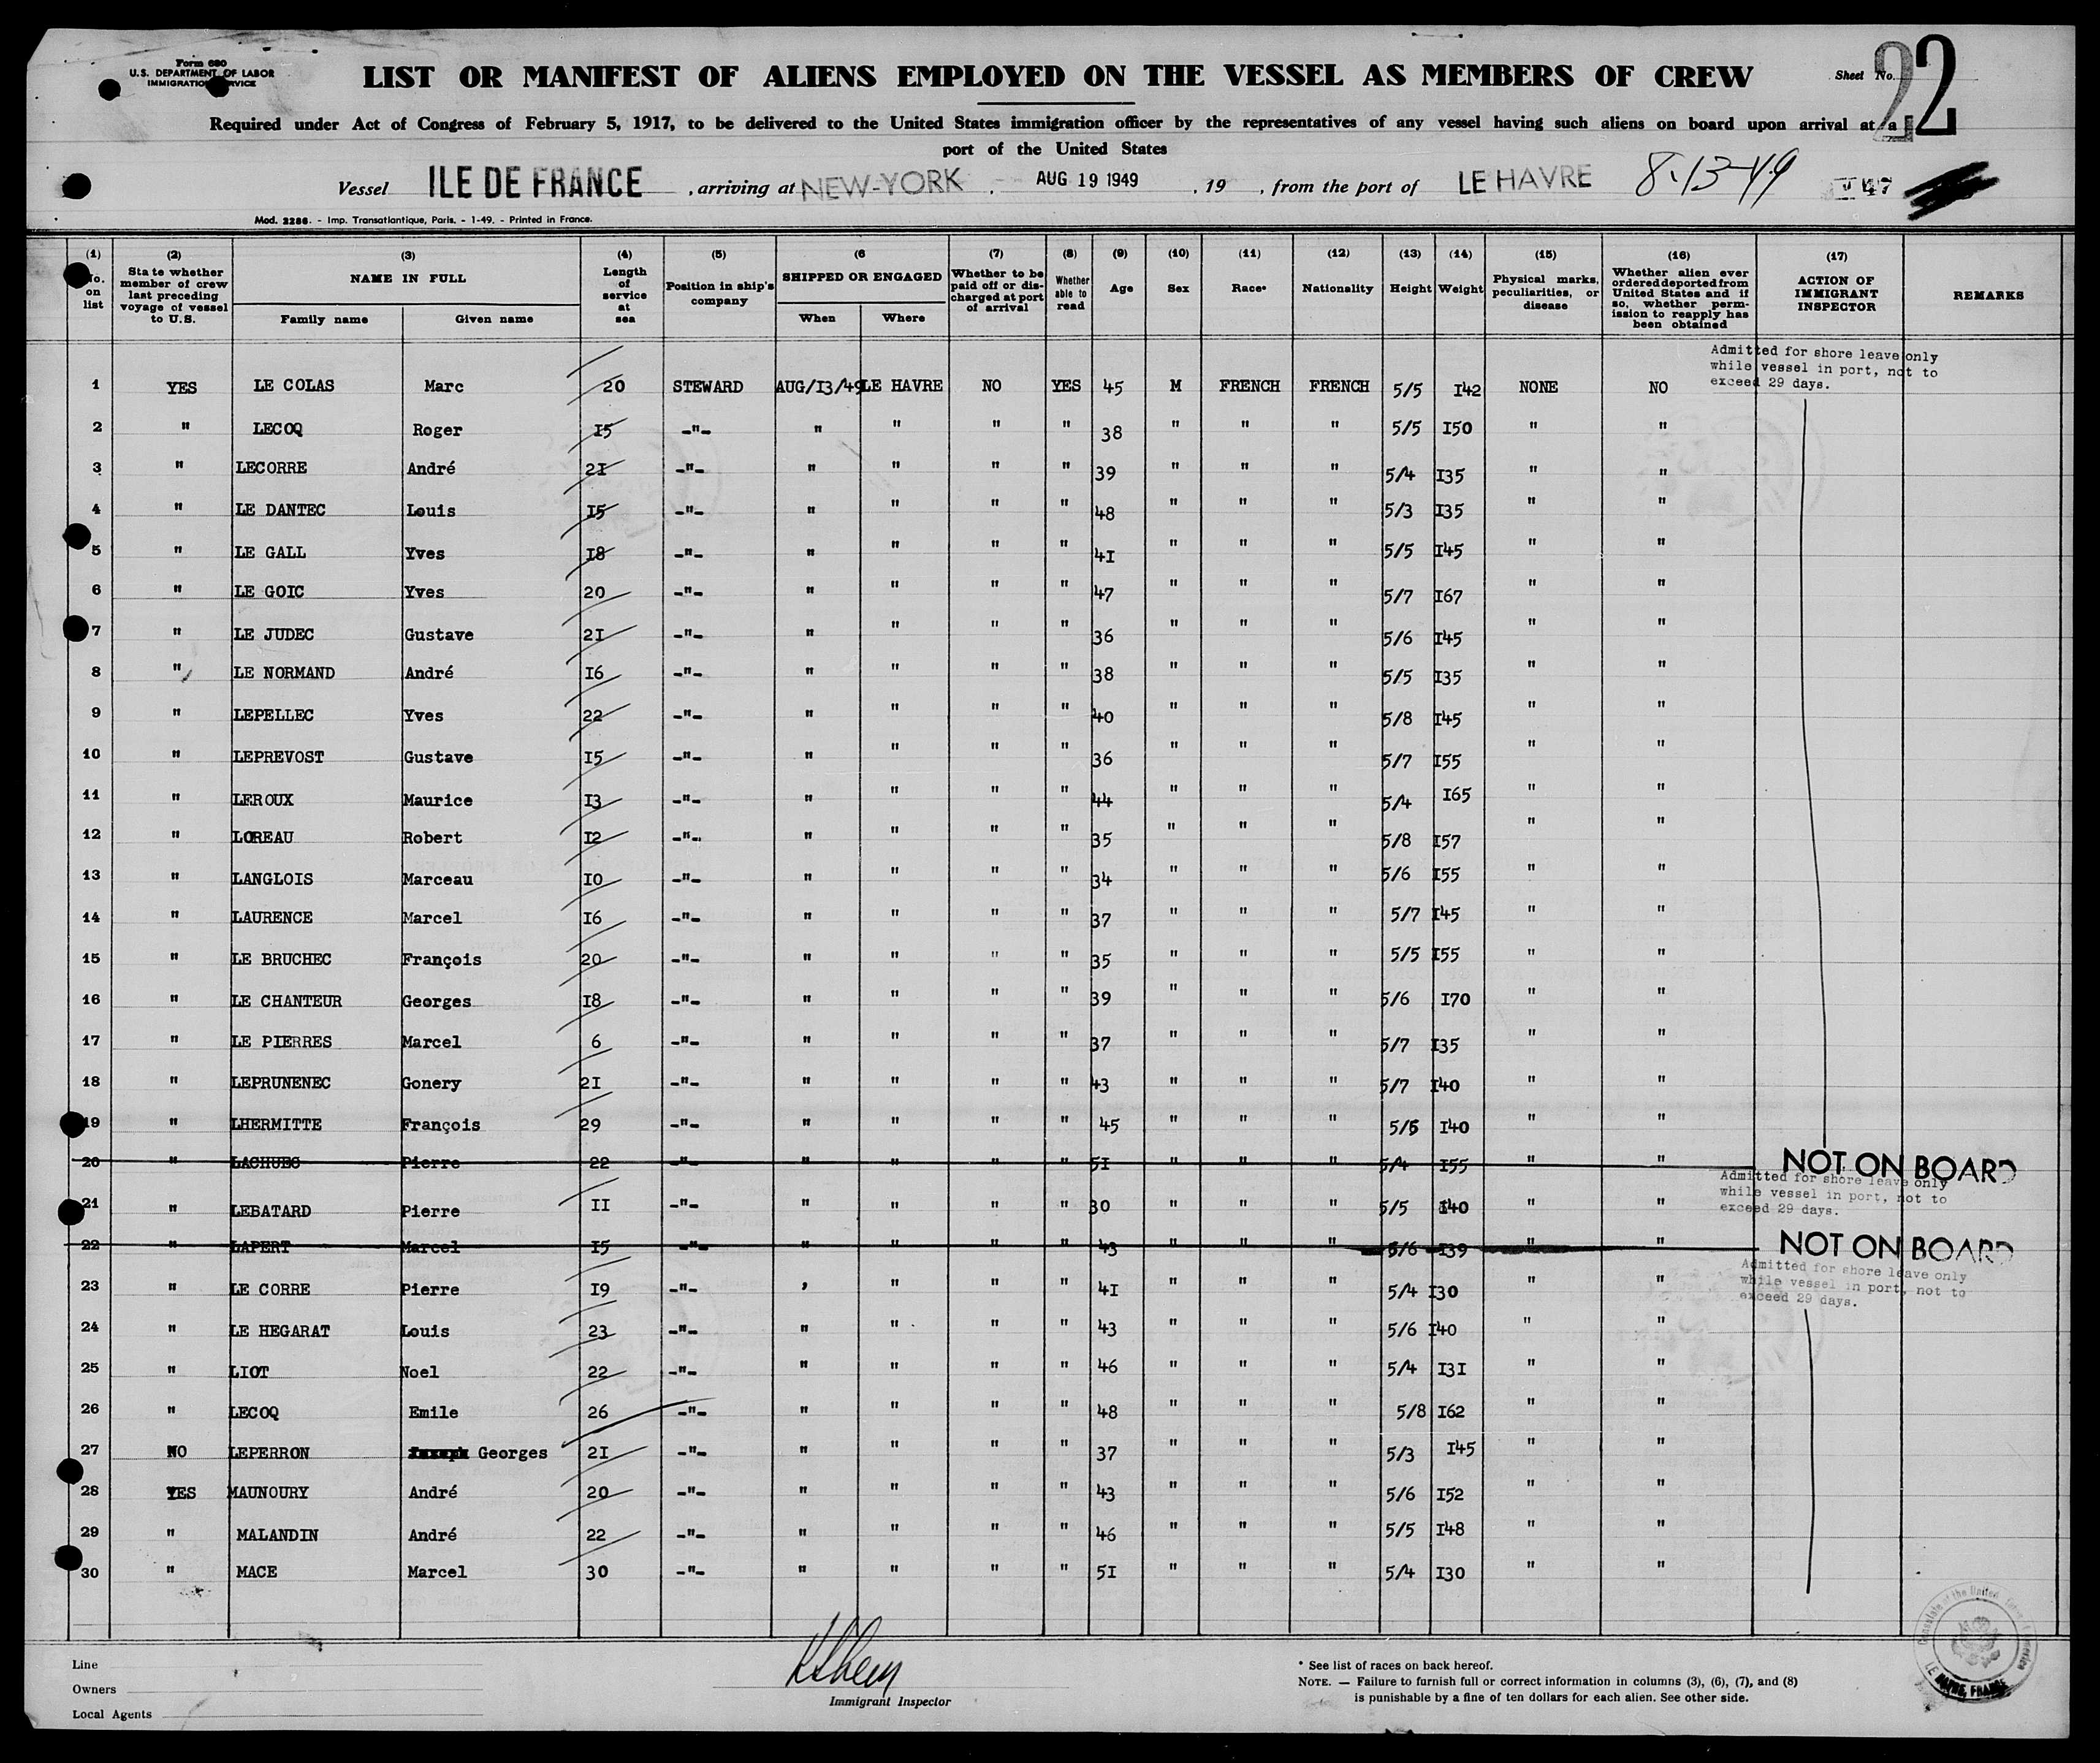 Form 680
U.S. DEPARTMENT OF LABOR
IMMIGRATION SERVICE
LIST OR MANIFEST OF ALIENS EMPLOYED ON THE VESSEL AS MEMBERS OF CREW
Sheet No. 22
Required under Act of Congress of February 5, 1917, to be delivered to the United States immigration officer by the representatives of any vessel having such aliens on board upon arrival at a
port of the United States
Vessel ILE DE FRANCE , arriving at NEW-YORK , AUG 19 1949 , 19 , from the port of LE HAVRE 8-13-49 47
Mod. 2286. - Imp. Transatlantique, Paris. - 1-49. - Printed in France.
(1) (2) (3) (4) (5) (6 (7) (8) (9) (10) (11) (12) (13) (14) (15) (16) (17)
No. on list
State whether member of crew last preceding voyage of vessel to U.S.
NAME IN FULL
Family name Given name
Length of service at sea
Position in ship's company
SHIPPED OR ENGAGED
When Where
Whether to be paid off or discharged at port of arrival
Whether able to read
Age
Sex
Race*
Nationality
Height
Weight
Physical marks, peculiarities, or disease
Whether alien ever ordered deported from United States and if so, whether permission to reapply has been obtained
ACTION OF IMMIGRANT INSPECTOR
REMARKS
Admitted for shore leave only
while vessel in port, not to
exceed 29 days.
1 YES LE COLAS Marc 20 STEWARD AUG/I3/49 LE HAVRE NO YES 45 M FRENCH FRENCH 5/5 I42 NONE NO
2 " LECOQ Roger I5 -"- " " " " 38 " " " 5/5 I50 " "
3 " LECORRE André 2I -"- " " " " 39 " " " 5/4 I35 " "
4 " LE DANTEC Louis I5 -"- " " " " 48 " " " 5/3 I35 " "
5 " LE GALL Yves I8 -"- " " " " 4I " " " 5/5 I45 " "
6 " LE GOIC Yves 20 -"- " " " " 47 " " " 5/7 I67 " "
7 " LE JUDEC Gustave 2I -"- " " " " 36 " " " 5/6 I45 " "
8 " LE NORMAND André I6 -"- " " " " 38 " " " 5/5 I35 " "
9 " LEPELLEC Yves 22 -"- " " " " 40 " " " 5/8 I45 " "
10 " LEPREVOST Gustave I5 -"- " " " " 36 " " " 5/7 I55 " "
11 " LEROUX Maurice I3 -"- " " " " 44 " " " 5/4 I65 " "
12 " LOREAU Robert I2 -"- " " " " 35 " " " 5/8 I57 " "
13 " LANGLOIS Marceau I0 -"- " " " " 34 " " " 5/6 I55 " "
14 " LAURENCE Marcel I6 -"- " " " " 37 " " " 5/7 I45 " "
15 " LE BRUCHEC François 20 -"- " " " " 35 " " " 5/5 I55 " "
16 " LE CHANTEUR Georges I8 -"- " " " " 39 " " " 5/6 I70 " "
17 " LE PIERRES Marcel 6 -"- " " " " 37 " " " 5/7 I35 " "
18 " LEPRUNENEC Gonery 2I -"- " " " " 43 " " " 5/7 I40 " "
19 " LHERMITTE François 29 -"- " " " " 45 " " " 5/5 I40 " "
20 " Pierre 22 -"- " " " " 5I " " " 5/4 I55 " " NOT ON BOARD
Admitted for shore leave only
while vessel in port, not to
exceed 29 days.
21 " LEBATARD Pierre II -"- " " " " 30 " " " 5/5 I40 " "
22 " LAPERT Marcel I5 -"- " " " " 43 " " " 5/6 I39 " " NOT ON BOARD
Admitted for shore leave only
while vessel in port, not to
exceed 29 days.
23 " LE CORRE Pierre I9 -"- ' " " " 4I " " " 5/4 I30 " "
24 " LE HEGARAT Louis 23 -"- " " " " 43 " " " 5/6 I40 " "
25 " LIOT Noel 22 -"- " " " " 46 " " " 5/4 I3I " "
26 " LECOQ Emile 26 -"- " " " " 48 " " " 5/8 I62 " "
27 NO LEPERRON Georges 2I -"- " " " " 37 " " " 5/3 I45 " "
28 YES MAUNOURY André 20 -"- " " " " 43 " " " 5/6 I52 " "
29 " MALANDIN André 22 -"- " " " " 46 " " " 5/5 I48 " "
30 " MACE Marcel 30 -"- " " " " 5I " " " 5/4 I30 " "
Line
Owners
Local Agents
Immigrant Inspector
* See list of races on back hereof.
NOTE. — Failure to furnish full or correct information in columns (3), (6), (7), and (8)
is punishable by a fine of ten dollars for each alien. See other side.
LE HAVRE, FRANCE